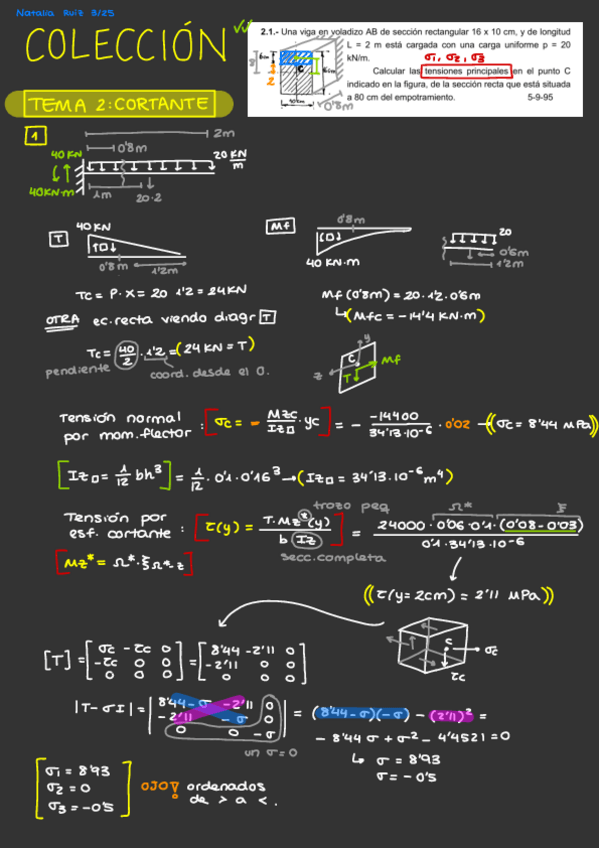 Natalia Ruiz 3/25
COLECCIÓN
2.1.- Una viga en voladizo AB de sección rectangular 16 x 10 cm, y de longitud
L = 2 m está cargada con una carga uniforme p = 20
kN/m.
σ1, σ2, σ3
Calcular las tensiones principales en el punto C
indicado en la figura, de la sección recta que está situada
a 80 cm del empotramiento. 5-9-95
6cm
C
2
6cm
10cm
0'8m
TEMA 2: CORTANTE
1
2m
0'8m
40 KN
20 KN/m
40KN·m
1m
20·2
T
40 KN
0'8m
1'2m
Mf
0'8m
40 KN·m
20
0'6m
1'2m
Tc = P·X = 20 1'2 = 24KN
Mf (0'8m) = 20·1'2·0'6m
OTRA ec.recta viendo diagr T
↳(Mfc = -14'4 KN·m)
Tc = 40/2 · 1'2 = (24 KN = T)
pendiente
coord. desde el 0.
y
C
z
T
Mf
Tensión normal
por mom. flector : [σc = - Mzc/Iz□ · yc] = - -14400/34'13·10⁻⁶ · 0'02 → ((σc = 8'44 MPa))
[Iz□ = 1/12 bh³] = 1/12 · 0'1·0'16³ → (Iz□ = 34'13·10⁻⁶ m⁴)
trozo peq
Ω*
ξ
Tensión por
esf. cortante : [τ(y) = T·Mz*(y) / b Iz] = 24000·0'06·0'1·(0'08-0'03) / 0'1·34'13·10⁻⁶
secc.completa
[Mz* = Ω*·ξΩ*z]
((τ(y=2cm) = 2'11 MPa))
C
σc
τc
[T] = [σc -τc 0; -τc 0 0; 0 0 0] = [8'44 -2'11 0; -2'11 0 0; 0 0 0]
|T-σI| = |8'44-σ -2'11 0; -2'11 -σ 0; 0 0 -σ| = (8'44-σ)(-σ) - (2'11)² =
un σ=0
- 8'44 σ + σ² - 4'4521 = 0
↳ σ = 8'93
σ = -0'5
[σ1 = 8'93
σ2 = 0
σ3 = -0'5]
OJO! ordenados
de > a <.